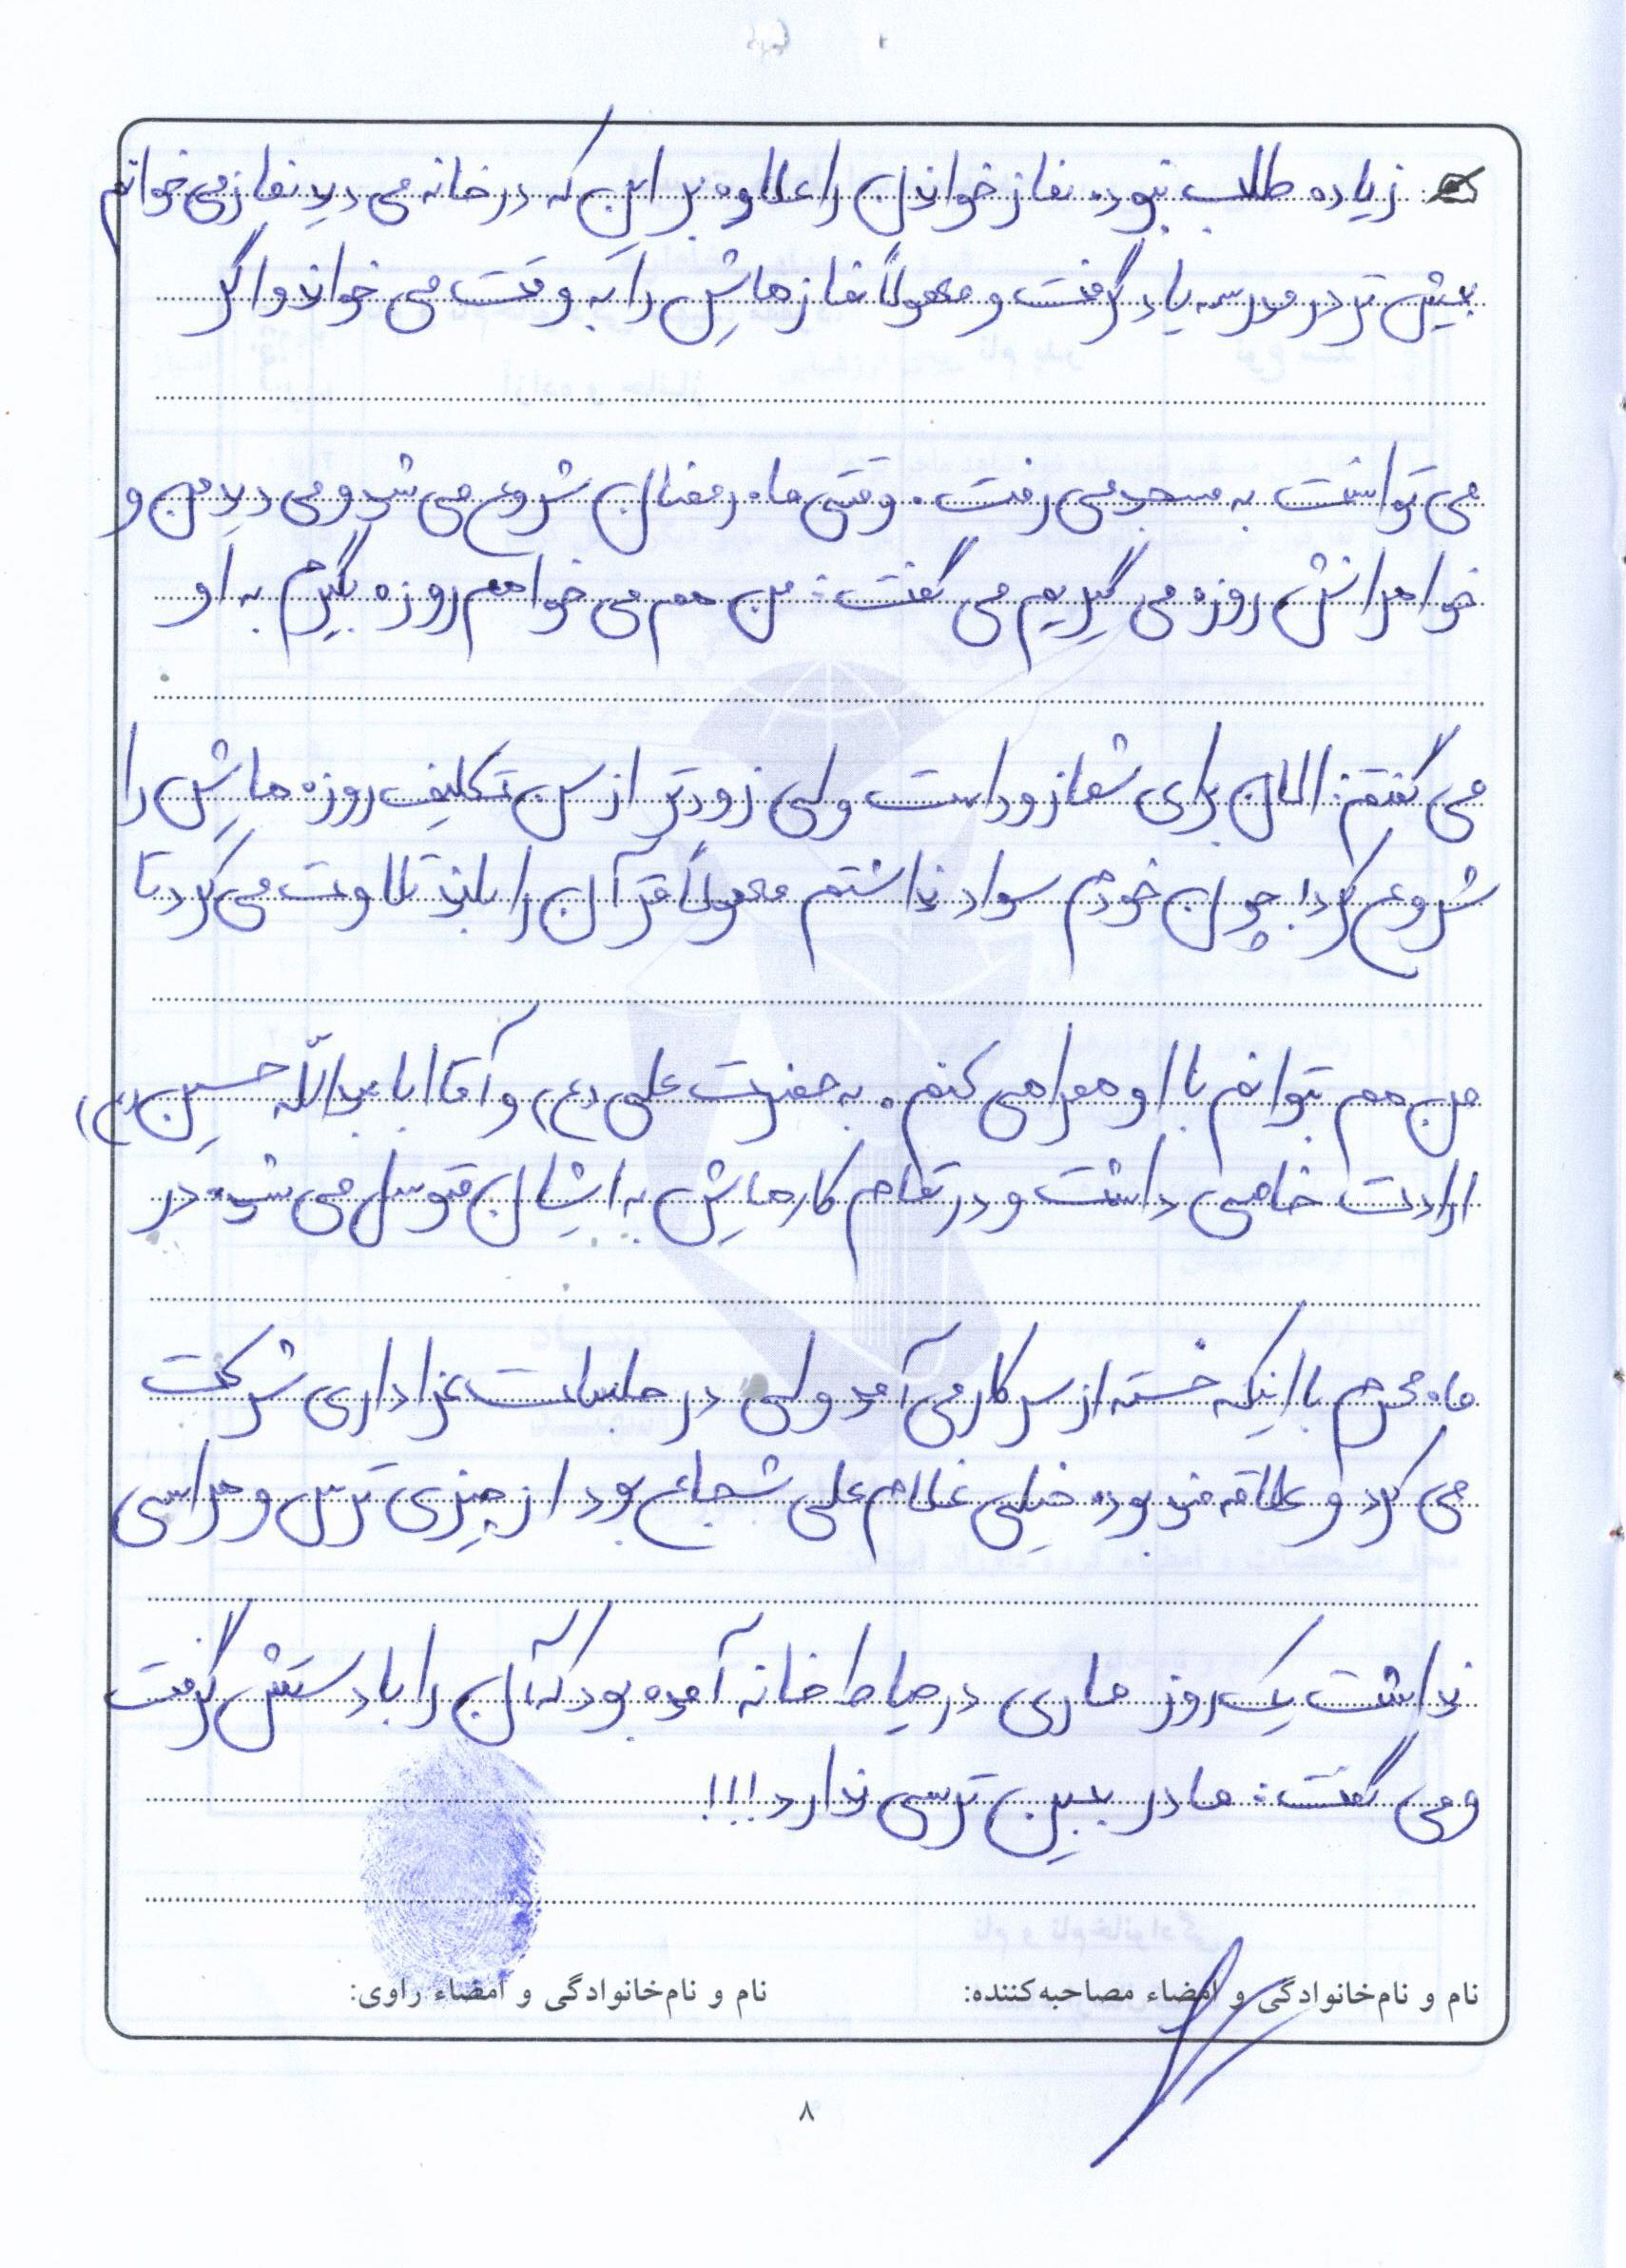 زیاده طلب نبود. نماز خواندن را علاوه بر این که در خانه می دید نماز می خوانم
بیش تر در مدرسه یاد گرفت و معمولاً نمازهایش را به وقت می خواند و اگر
می توانست به مسجد می رفت. وقتی ماه رمضان شروع می شد و می دید من و
خواهرانش روزه می گیریم می گفت: من هم می خواهم روزه بگیرم به او
می گفتم: الان برای شما زود است ولی زودتر از سن تکلیف روزه هایش را
شروع کرد! چون خودم سواد نداشتم معمولاً قرآن را بلند تلاوت می کرد تا
من هم بتوانم با او همراهی کنم. به حضرت علی (ع) و آقا ابا عبدالله حسین (ع)
ارادت خاصی داشت و در تمام کارهایش به ایشان متوسل می شد. در
ماه محرم با اینکه خسته از سر کار می آمد ولی در جلسات عزاداری شرکت
می کرد و علاقه مند بود. خیلی غلام علی شجاع بود از چیزی ترس و هراسی
نداشت یک روز ماری در حیاط خانه آمده بود که آن را با دستش گرفت
و می گفت: مادر ببین ترسی ندارد!!!
نام و نام‌خانوادگی و امضاء مصاحبه‌کننده: نام و نام‌خانوادگی و امضاء راوی:
۸